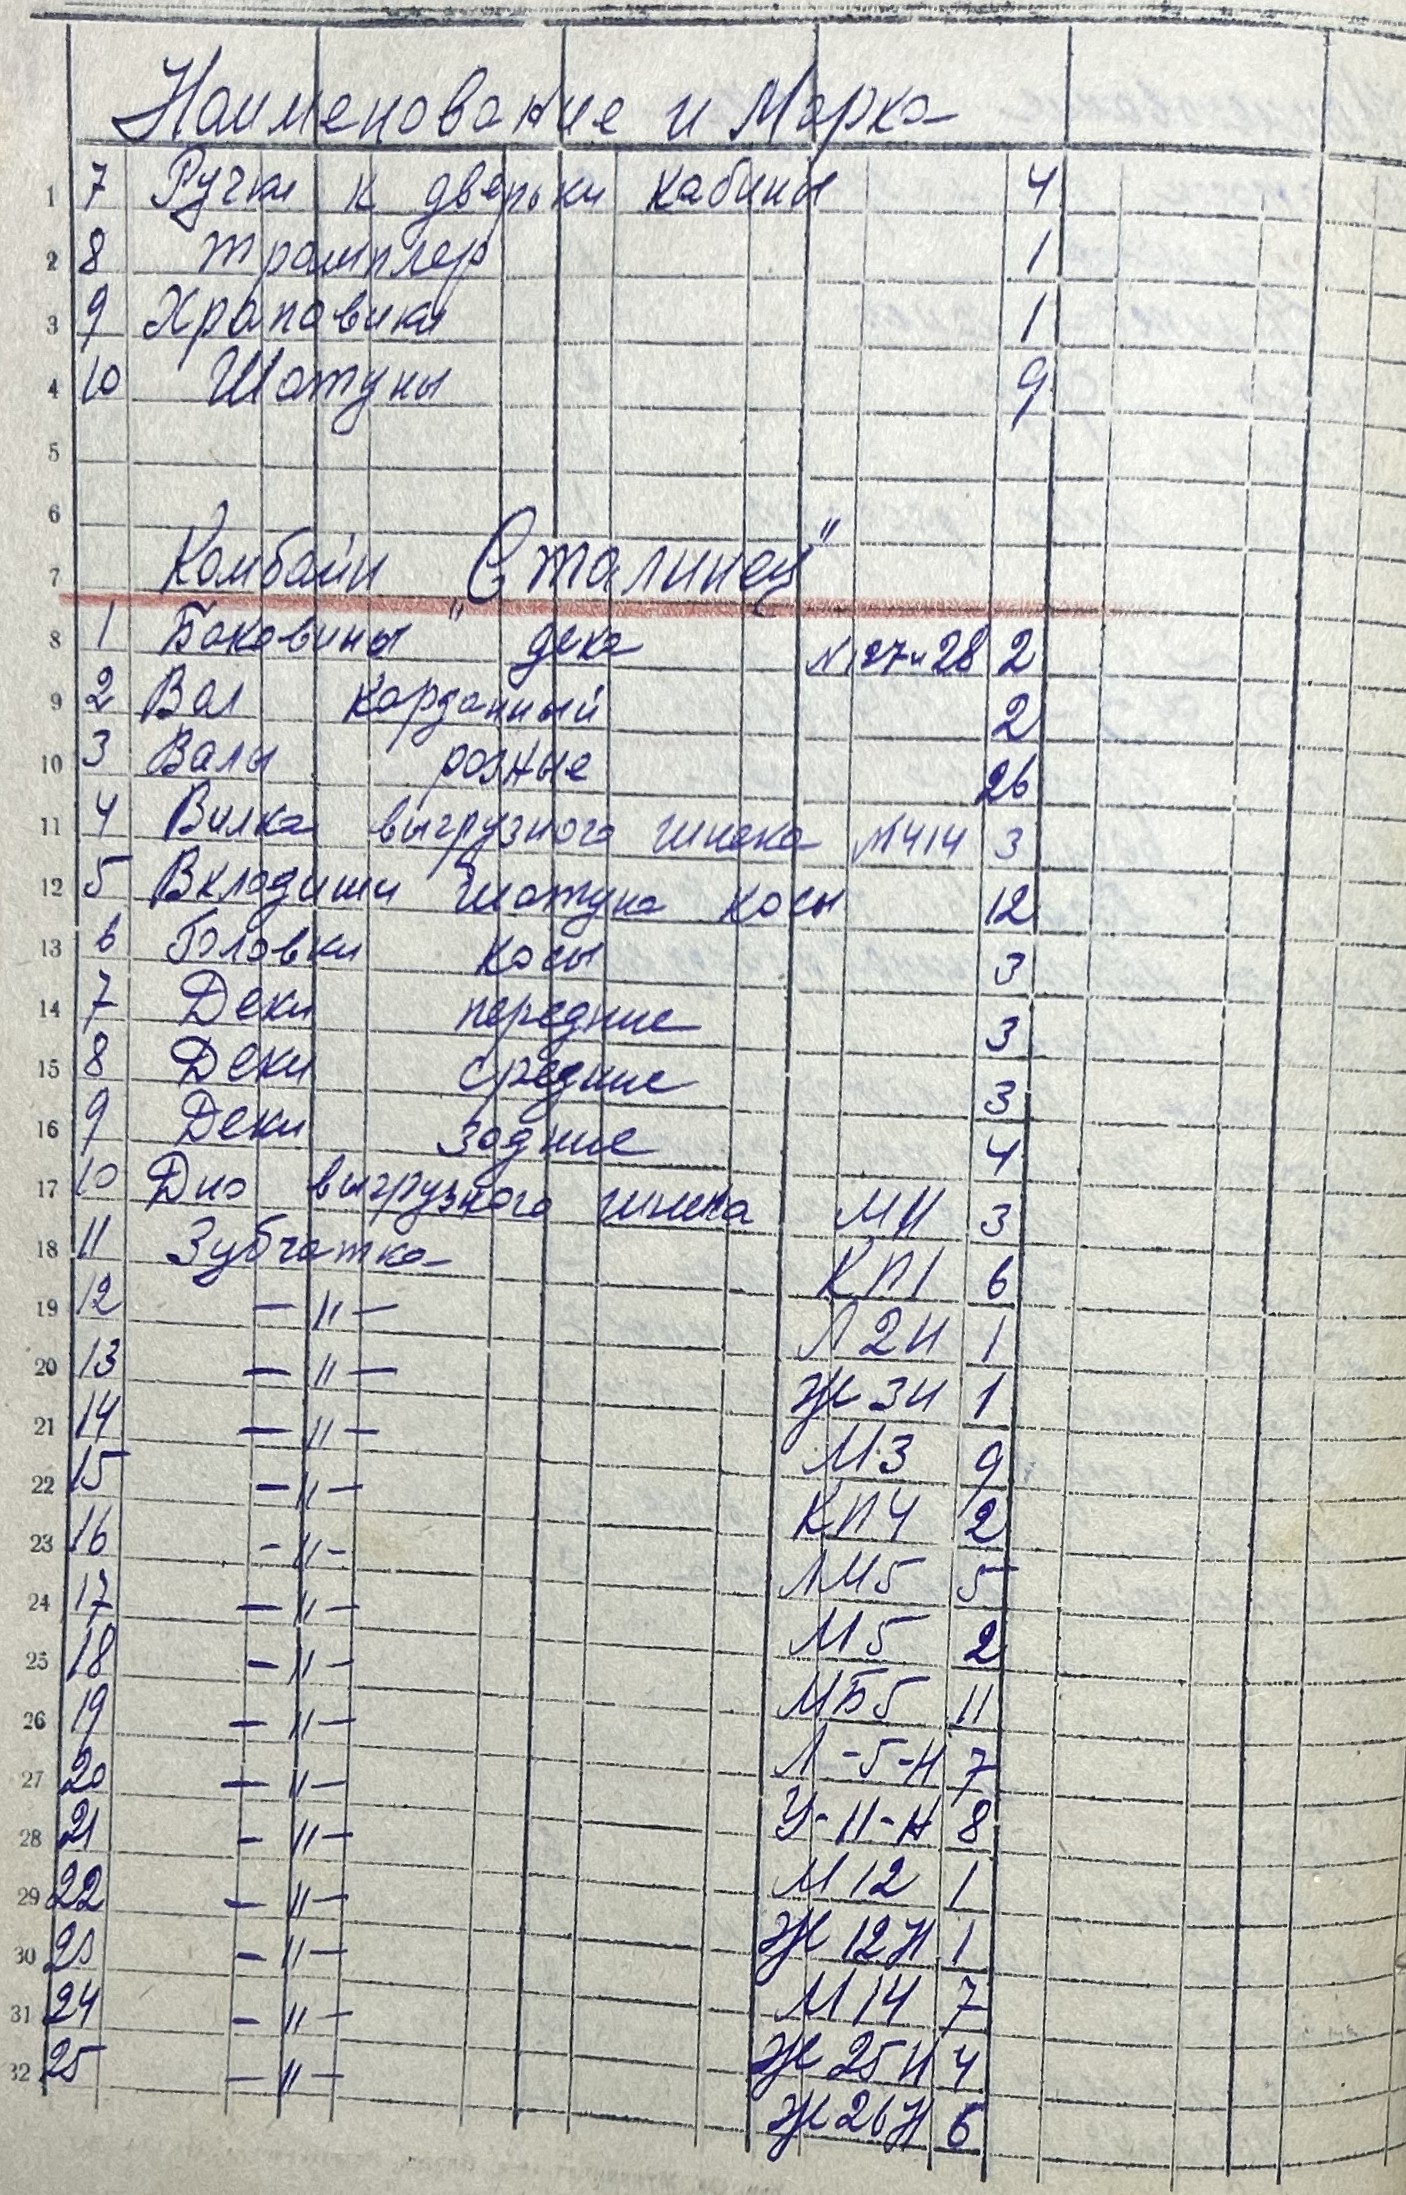 Наименование и Марка
1 7 Ручки к дверьки кабины 4
2 8 Трамплер 1
3 9 Храповики 1
4 10 Шатуны 9
5
6
7 Комбайн „Сталинец"
8 1 Боковины дека №27и28 2
9 2 Вал карданный 2
10 3 Валы разные 26
11 4 Вилка выгрузного шнека М414 3
12 5 Вкладиши шатуна косы 12
13 6 Головки косы 3
14 7 Деки передние 3
15 8 Деки средние 3
16 9 Деки задние 4
17 10 Дно выгрузного шнека МН 3
18 11 Зубчатка КП1 6
19 12 —〃— Л2Н 1
20 13 —〃— Ж3Н 1
21 14 —〃— М3 9
22 15 —〃— КП4 2
23 16 -〃- ЛМ5 5
24 17 —〃— М5 2
25 18 —〃— МБ5 11
26 19 —〃— Л-5-Н 7
27 20 —〃— У-11-Н 8
28 21 —〃— М12 1
29 22 —〃— Ж12Н 1
30 23 —〃— М14 7
31 24 —〃— Ж25Н 4
32 25 —〃— Ж26Н 6